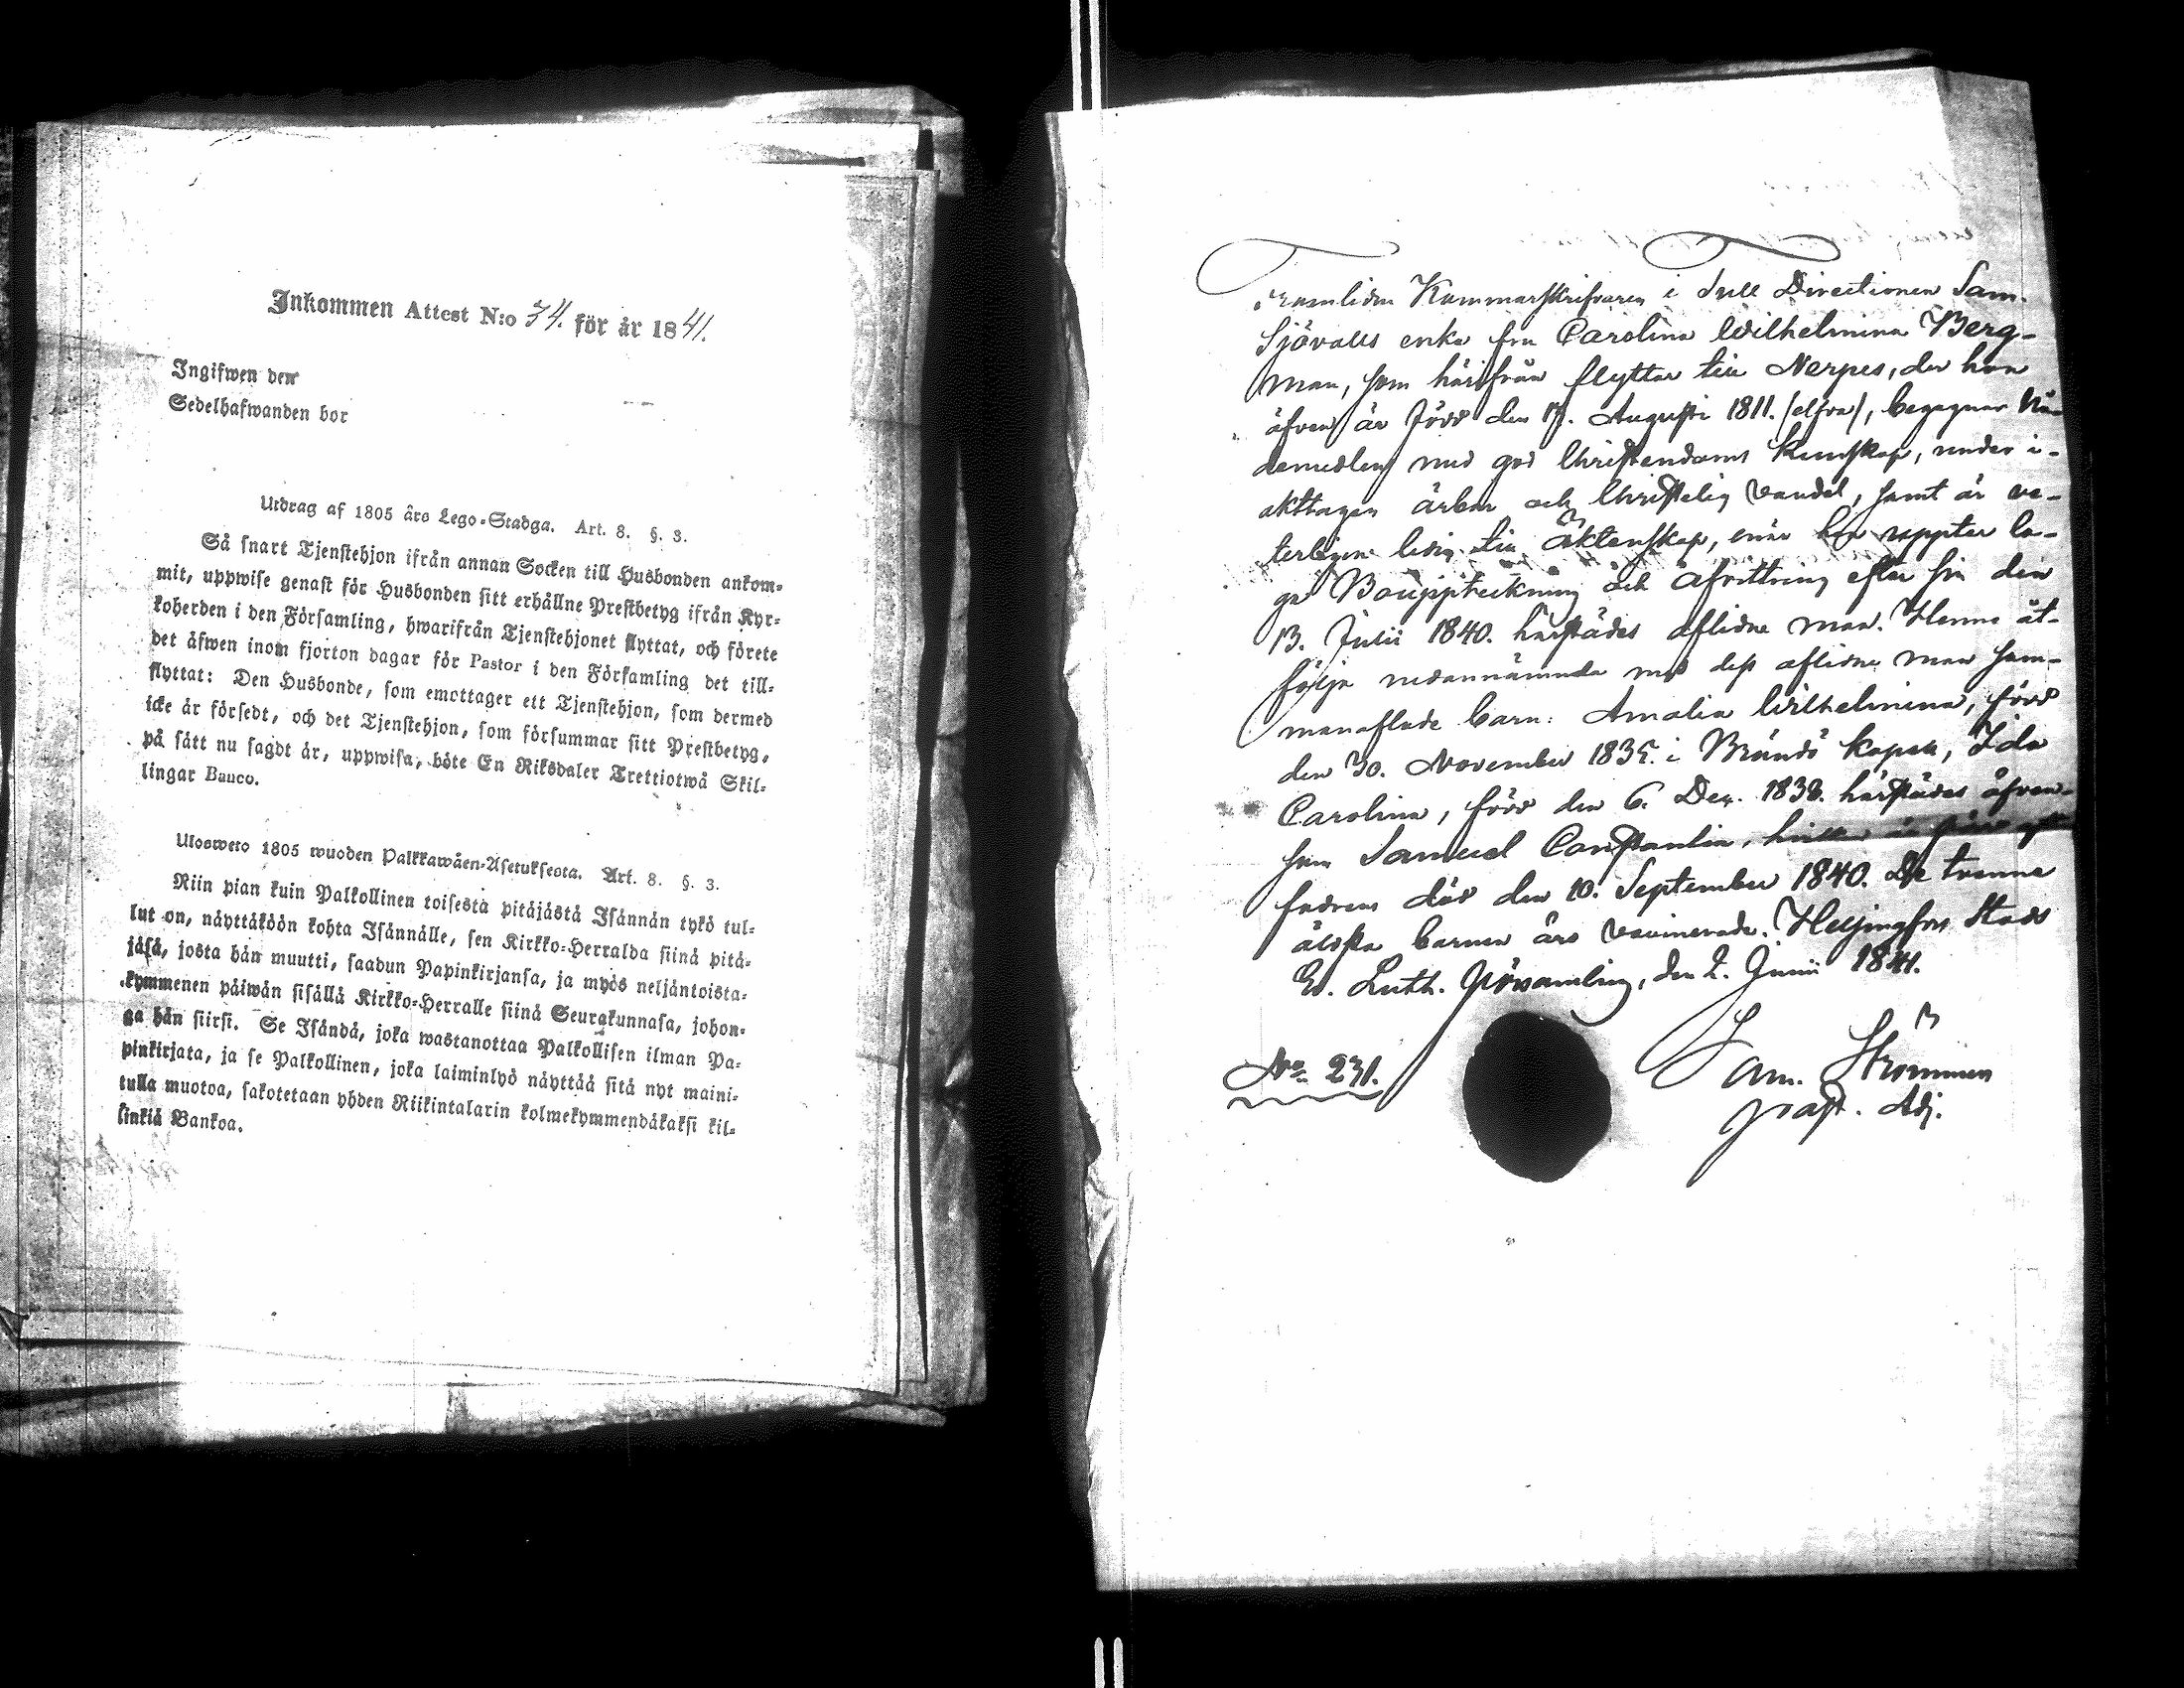 Inkommen Attest N:o 34. för år 1841.
Ingifwen den
Sedelhafwanden bor
Utdrag af 1805 års Lego-Stadga. Art. 8. §. 3.
Så snart Tjenstehjon ifrån annan Socken till Husbonden ankom-
mit, uppwise genast för Husbonden sitt erhållne Prestbetyg ifrån Kyr-
koherden i den Församling, hwarifrån Tjenstehjonet flyttat, och förete
det äfwen inom fjorton dagar för Pastor i den Församling det till-
flyttat: Den Husbonde, som emottager ett Tjenstehjon, som dermed
icke är försedt, och det Tjenstehjon, som försummar sitt Prestbetyg,
på sätt nu sagdt är, uppwisa, böte En Riksdaler Trettiotwå Skil-
lingar Banco.
Ulosweto 1805 wuoden Palkkawäen-Asetuksesta. Art. 8. §. 3.
Niin pian kuin Palkollinen toisesta pitäjästä Isännän tykö tul-
lut on, näyttäköön kohta Isännälle, sen Kirkko-Herralda siinä pitä-
jäsä, josta hän muutti, saadun Papinkirjansa, ja myös neljäntoista-
kymmenen päiwän sisällä Kirkko-Herralle siinä Seurakunnasa, johon-
ga hän siirsi. Se Isändä, joka wastanottaa Palkollisen ilman Pa-
pinkirjata, ja se Palkollinen, joka laiminlyö näyttää sitä nyt maini-
tulla muotoa, sakotetaan yhden Riikintalarin kolmekymmendäkaksi kil-
linkiä Bankoa.
Framlidne Kammarskrifvaren i Tull Directionen Sam.
Sjövalls enka fru Carolina Wilhelmina Berg-
man, som härifrån flyttar till Nerpes, der hon
äfven är född den 17. Augusti 1811. (elfva), begagnar Nå-
demedlen med god Christendoms kunskap, under i-
akttagen ärbar och Christelig vandel, samt är ve-
terligen ledig till Äktenskap, enär hon uppter la-
ga Bouppteckning och Afvittring efter sin den
13. Julii 1840. härstädes aflidne man. Henne åt-
följa nedannämnda med dess aflidne man sam-
manaflade barn: Amalia Wilhelmina, född
den 30. November 1835. i Brändö kapell, Ida
Carolina, född den 6. Dec. 1838. härstädes äfven-
som Samuel Constantin, hvilken är född efter
fadrens död den 10. September 1840. De tvenne
äldsta barnen äro vaccinerade. Helsingfors Stads
Ev. Luth. Församling, den 2. Junii 1841.
No 231.
Sam. Strömmer
past. Adj.